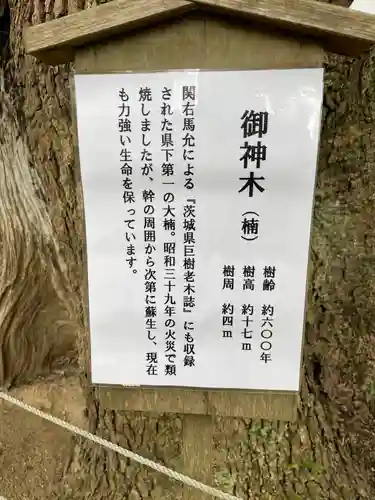 御神木（楠）
樹齢　約六〇〇年
樹高　約十七m
樹周　約四m
関右馬允による『茨城県巨樹老木誌』にも収録
された県下第一の大楠。昭和三十九年の火災で類
焼しましたが、幹の周囲から次第に蘇生し、現在
も力強い生命を保っています。